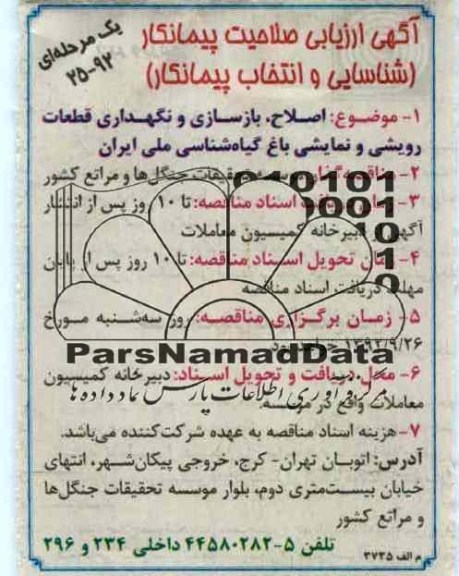 آگهی ارزیابی صلاحیت پیمانکار
(شناسایی و انتخاب پیمانکار)
یک مرحله‌ای
۲۵-۹۲
۱- موضوع: اصلاح، بازسازی و نگهداری قطعات
رویشی و نمایشی باغ گیاه‌شناسی ملی ایران
۲- مناقصه‌گزار: موسسه تحقیقات جنگل‌ها و مراتع کشور
۳- اسناد مناقصه: تا ۱۰ روز پس از انتشار
آگهی دبیرخانه کمیسیون معاملات
۴- زمان تحویل اسناد مناقصه: تا ۱۰ روز پس از پایان
مهلت دریافت اسناد مناقصه
۵- زمان برگزاری مناقصه: روز سه‌شنبه مورخ
۱۳۹۲/۹/۲۶
۶- محل دریافت و تحویل اسناد: دبیرخانه کمیسیون
معاملات واقع در موسسه
۷- هزینه اسناد مناقصه به عهده شرکت‌کننده می‌باشد.
آدرس: اتوبان تهران- کرج، خروجی پیکان‌شهر، انتهای
خیابان بیست‌متری دوم، بلوار موسسه تحقیقات جنگل‌ها
و مراتع کشور
تلفن ۵-۴۴۵۸۰۲۸۲ داخلی ۲۳۴ و ۲۹۶
م الف ۳۷۳۵
ParsNamadData